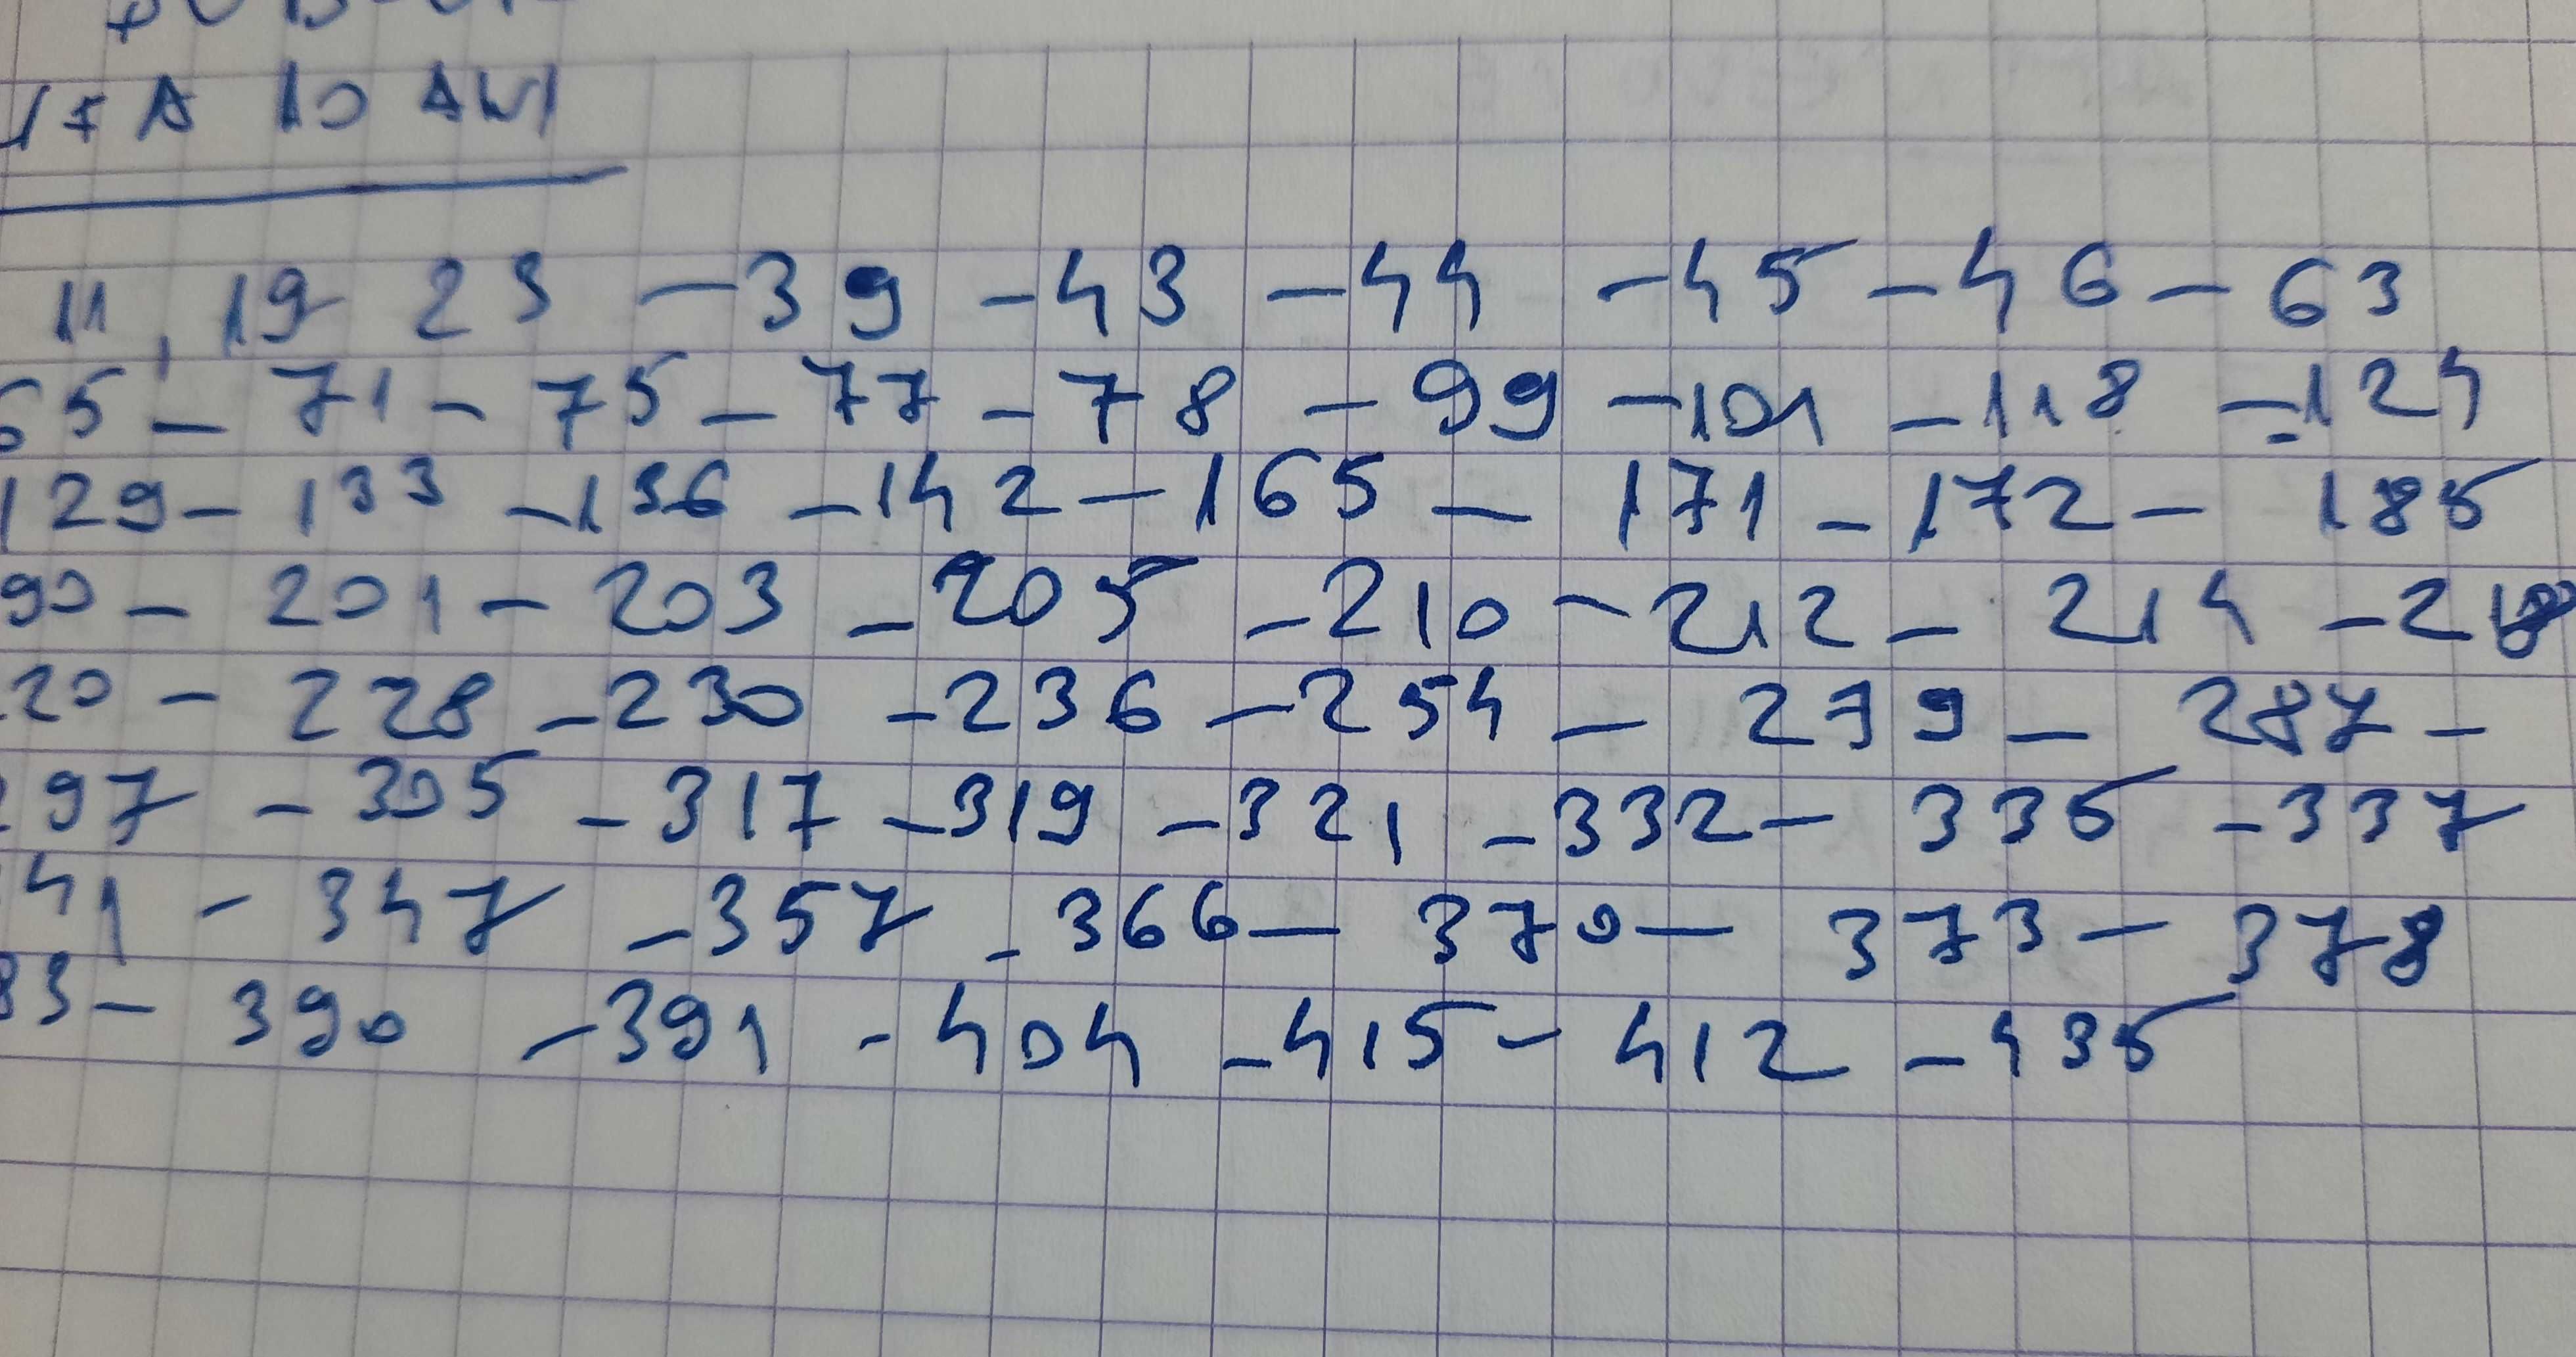 10 ANNI
11, 19 23 - 39 - 43 - 44 - 45 - 46 - 63
65 - 71 - 75 - 77 - 78 - 99 - 101 - 118 - 124
129 - 133 - 136 - 142 - 165 - 171 - 172 - 185
90 - 201 - 203 - 205 - 210 - 212 - 214 - 218
20 - 228 - 230 - 236 - 254 - 279 - 287 -
297 - 305 - 317 - 319 - 321 - 332 - 335 - 337
41 - 347 - 357 - 366 - 370 - 373 - 378
83 - 390 - 391 - 404 - 415 - 412 - 435